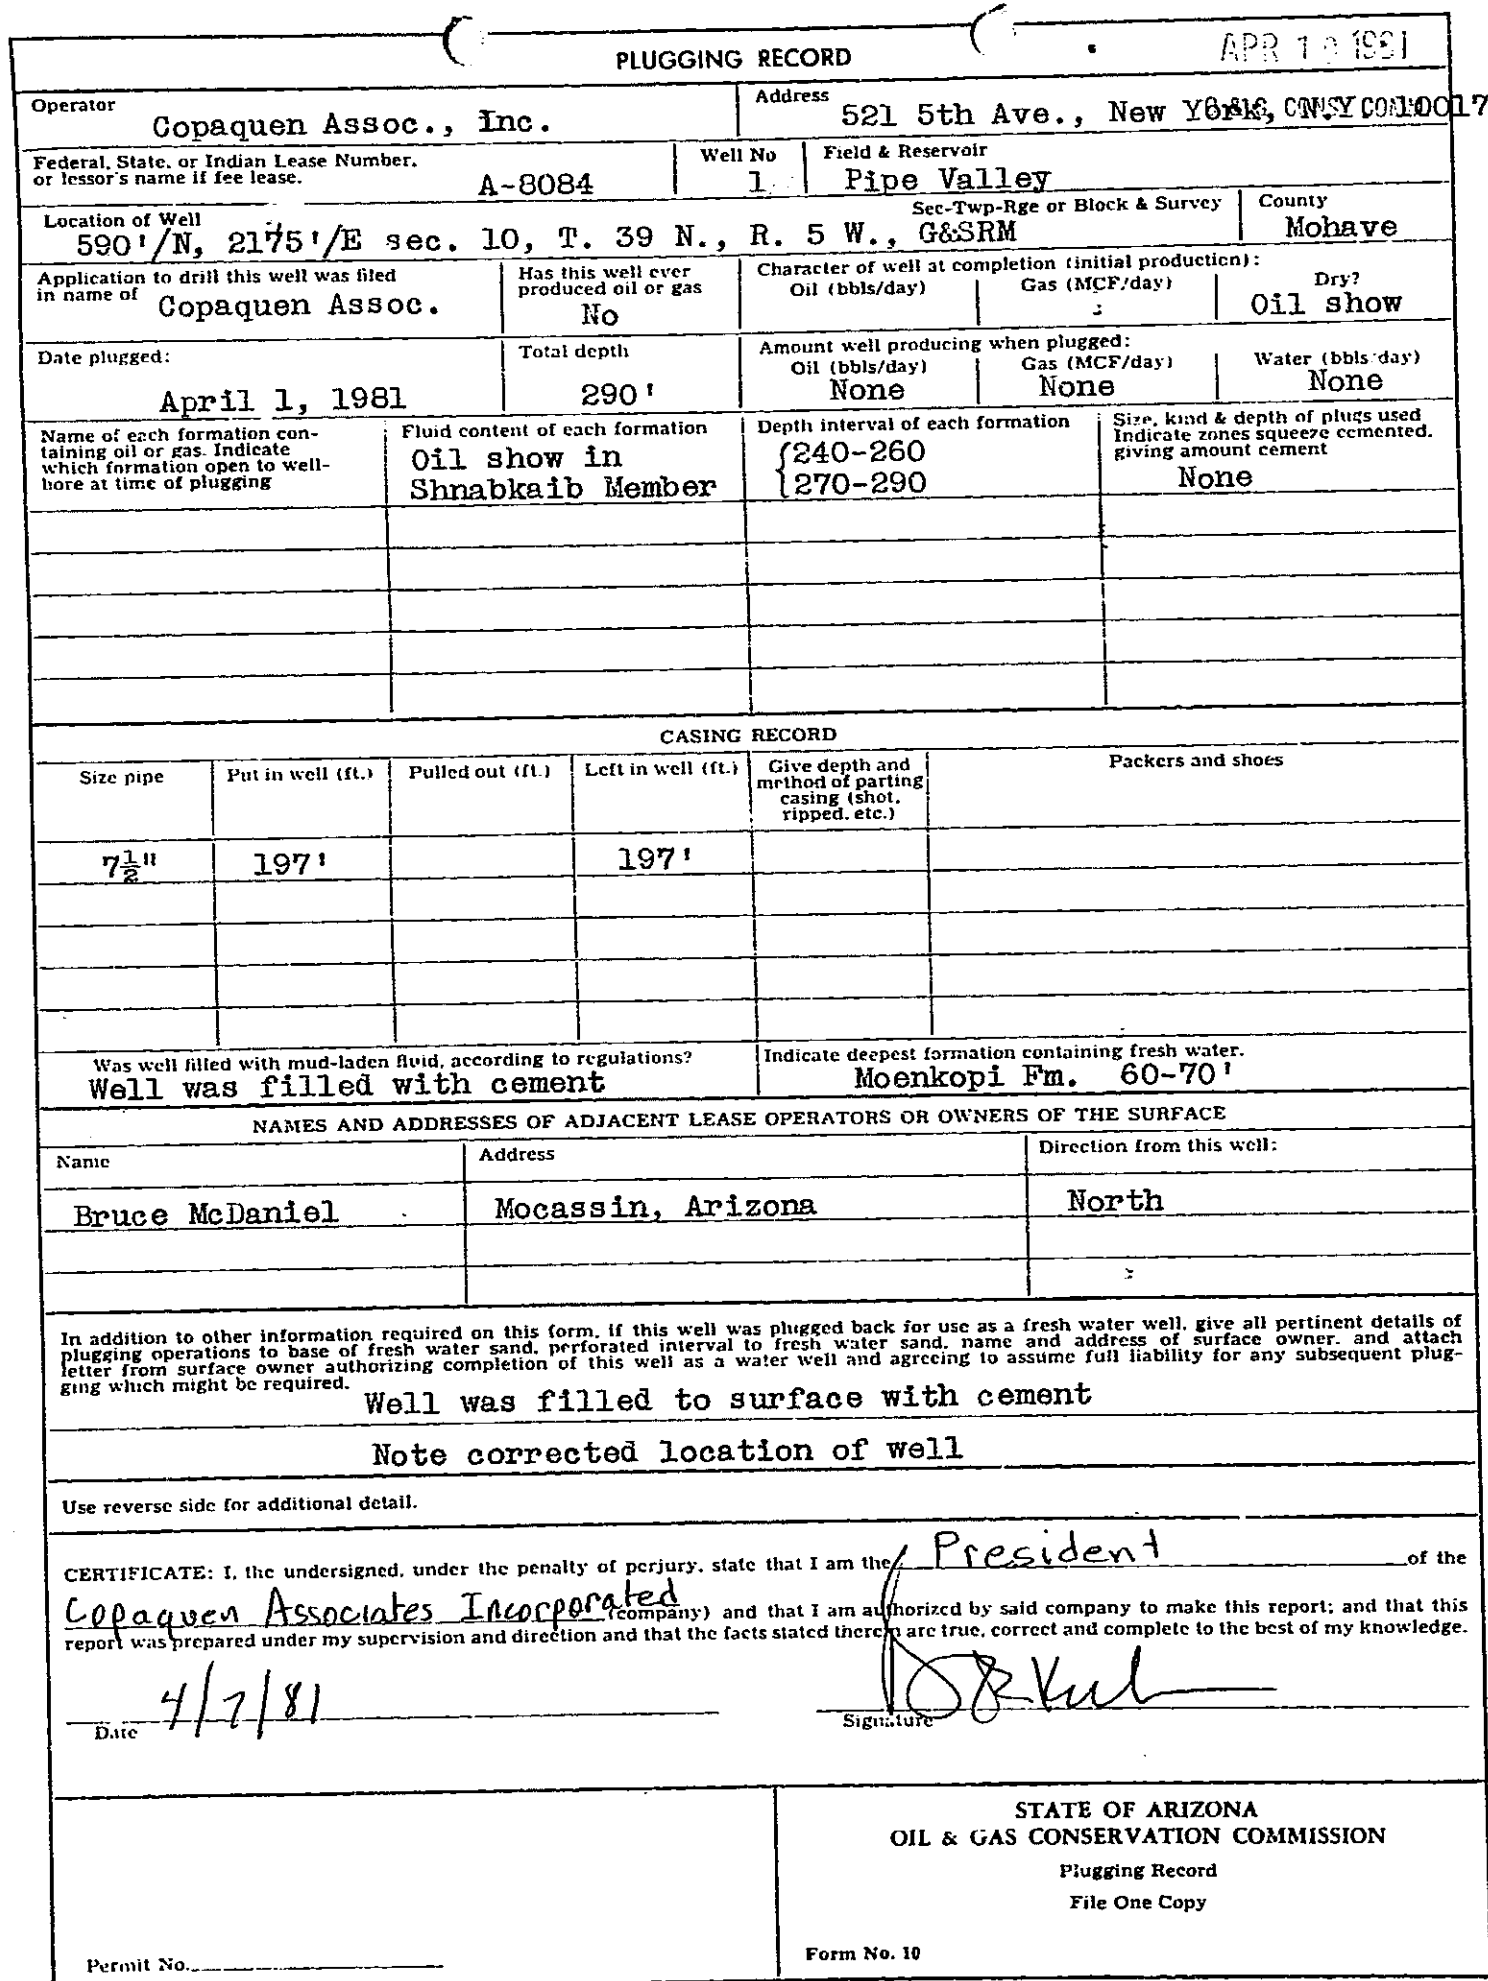 PLUGGING RECORD
APR 1 1981
Operator
Copaquen Assoc., Inc.
Address
521 5th Ave., New York, N.Y. 10017
Federal, State, or Indian Lease Number,
or lessor's name if fee lease.
A-8084
Well No
1
Field & Reservoir
Pipe Valley
Location of Well
590'/N, 2175'/E sec. 10, T. 39 N., R. 5 W., G&SRM
Sec-Twp-Rge or Block & Survey
County
Mohave
Application to drill this well was filed
in name of
Copaquen Assoc.
Has this well ever
produced oil or gas
No
Character of well at completion (initial production):
Oil (bbls/day)
Gas (MCF/day)
Dry?
Oil show
Date plugged:
April 1, 1981
Total depth
290'
Amount well producing when plugged:
Oil (bbls/day)
None
Gas (MCF/day)
None
Water (bbls/day)
None
Name of each formation con-
taining oil or gas. Indicate
which formation open to well-
bore at time of plugging
Fluid content of each formation
Oil show in
Shnabkaib Member
Depth interval of each formation
240-260
270-290
Size, kind & depth of plugs used
Indicate zones squeeze cemented,
giving amount cement
None
CASING RECORD
Size pipe
Put in well (ft.)
Pulled out (ft.)
Left in well (ft.)
Give depth and
method of parting
casing (shot,
ripped, etc.)
Packers and shoes
7½"
197'
197'
Was well filled with mud-laden fluid, according to regulations?
Well was filled with cement
Indicate deepest formation containing fresh water.
Moenkopi Fm. 60-70'
NAMES AND ADDRESSES OF ADJACENT LEASE OPERATORS OR OWNERS OF THE SURFACE
Name
Address
Direction from this well:
Bruce McDaniel
Mocassin, Arizona
North
In addition to other information required on this form, if this well was plugged back for use as a fresh water well, give all pertinent details of
plugging operations to base of fresh water sand, perforated interval to fresh water sand, name and address of surface owner, and attach
letter from surface owner authorizing completion of this well as a water well and agreeing to assume full liability for any subsequent plug-
ging which might be required.
Well was filled to surface with cement
Note corrected location of well
Use reverse side for additional detail.
CERTIFICATE: I, the undersigned, under the penalty of perjury, state that I am the President of the
Copaquen Associates Incorporated (company) and that I am authorized by said company to make this report; and that this
report was prepared under my supervision and direction and that the facts stated therein are true, correct and complete to the best of my knowledge.
4/7/81
Date
Signature
STATE OF ARIZONA
OIL & GAS CONSERVATION COMMISSION
Plugging Record
File One Copy
Form No. 10
Permit No.